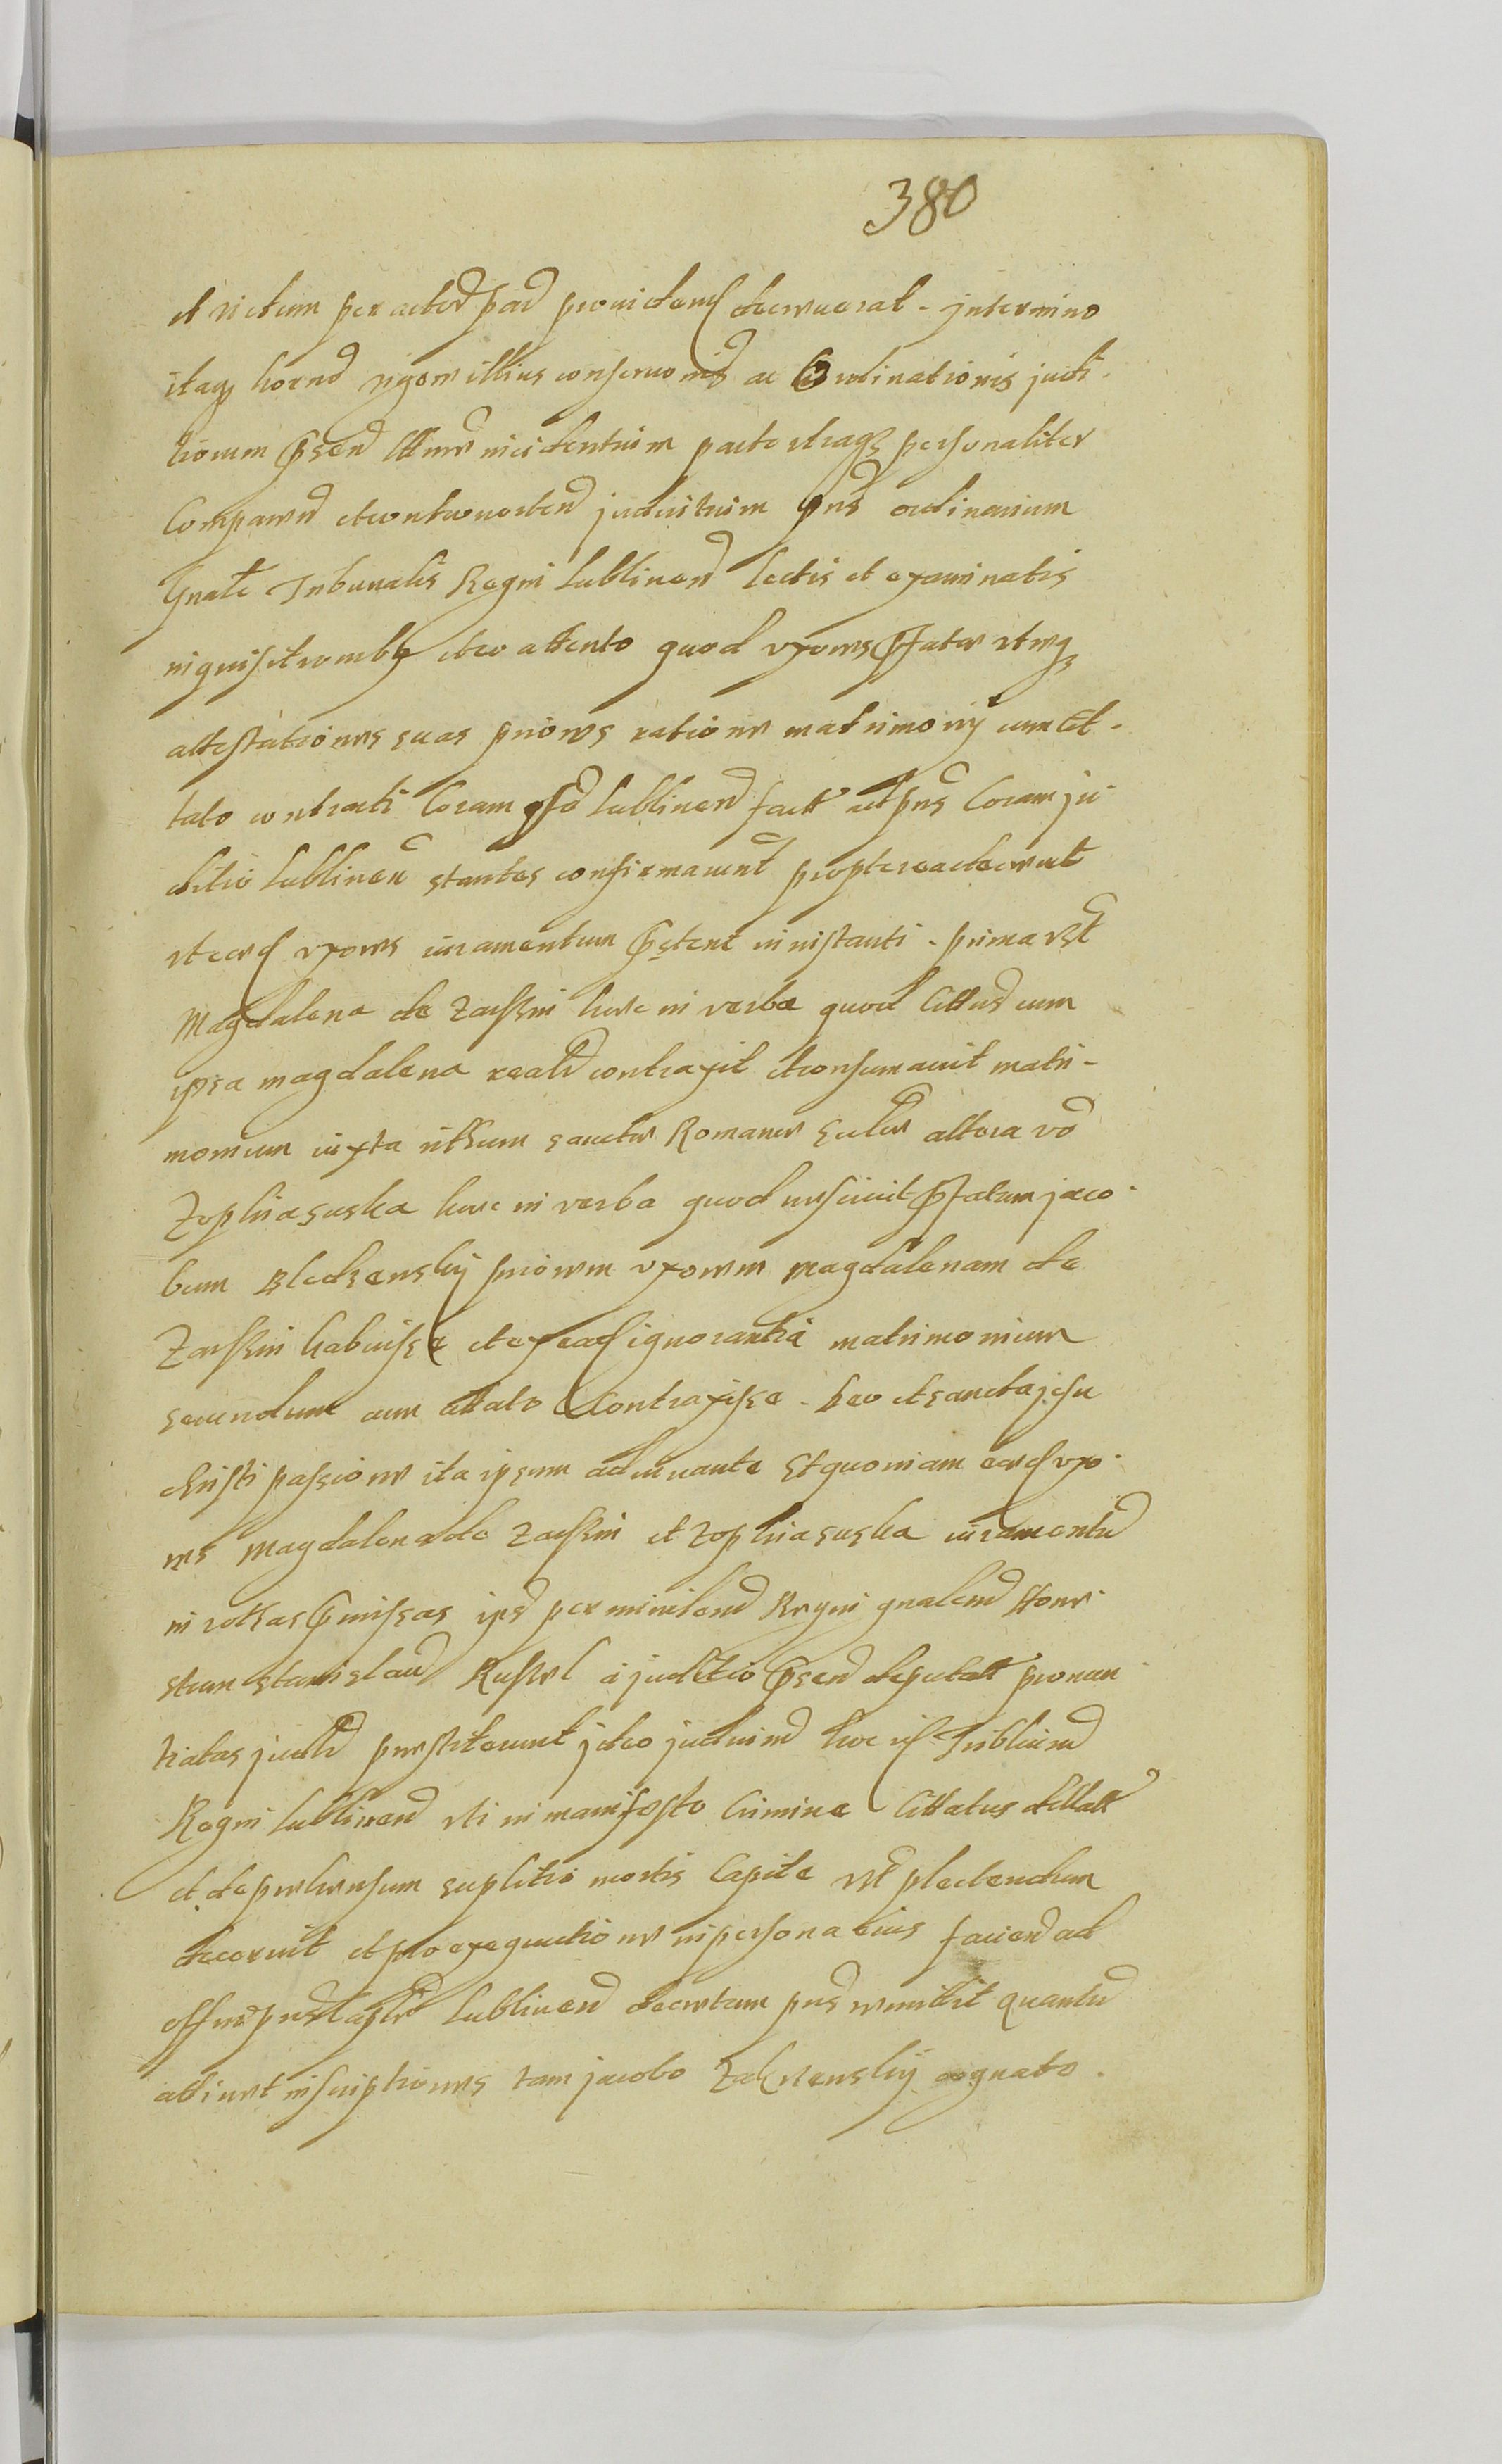 380
et victum per actor pad providend decreverat. In termino
itaq hornd vigore illius conservonis ac ordinationis judi-
tiorum psend incidentium parte utraq personaliter
Comparen et controverten juditium pns ordinarium
Gnale Tribunalis Regni Lublinen lectis et examinatis
inquisitionibq et eo attento quod uxores pfatae utraeq
attestationes suas priores ratione matrimonij cum Cit-
tato contracti Coram Lublinen fact ad pns Coram ju-
ditio Lublinen stantes confirmarunt propterea decrevit
ut eaed uxores iuramentum pstent in instanti. prima
Magdalena de Zarskin haec in verba quod Cittus cum
ipsa magdalena realr contraxit et consumavit matri-
monium iuxta ritum sanctae Romanae Eccliae altera vo
Zophia suska haec in verba quod nescivit pfatum jaco-
bum Bledzensky priorem uxorem magdalenam de
Zarskin habuisse et ex ead ignorantia matrimonium
secundum cum Cittato Contraxisse. Deo et sancta jesu
christi passione ita ipsum adiuvante Et quoniam eaed uxo-
res Magdalena de Zarskin et Zophia suska iuramentu
in rothas pmissas ipsd per ministend Regni gnalem Hone-
stum Stanislau a juditio psend deputat pronun-
tiatas judlr prestiterunt ideo juditium hoc Triblium
Regni Lublinen uti in manifesto Crimine Cittatus dellatt
et deprehensum suplitio mortis Capite plectendum
decernit et pro exequutione in persona eius faciend ad
offim pns Capler Lublinen decretum pns remittit quantu
attinet inscriptiones tam jacobo cognato.